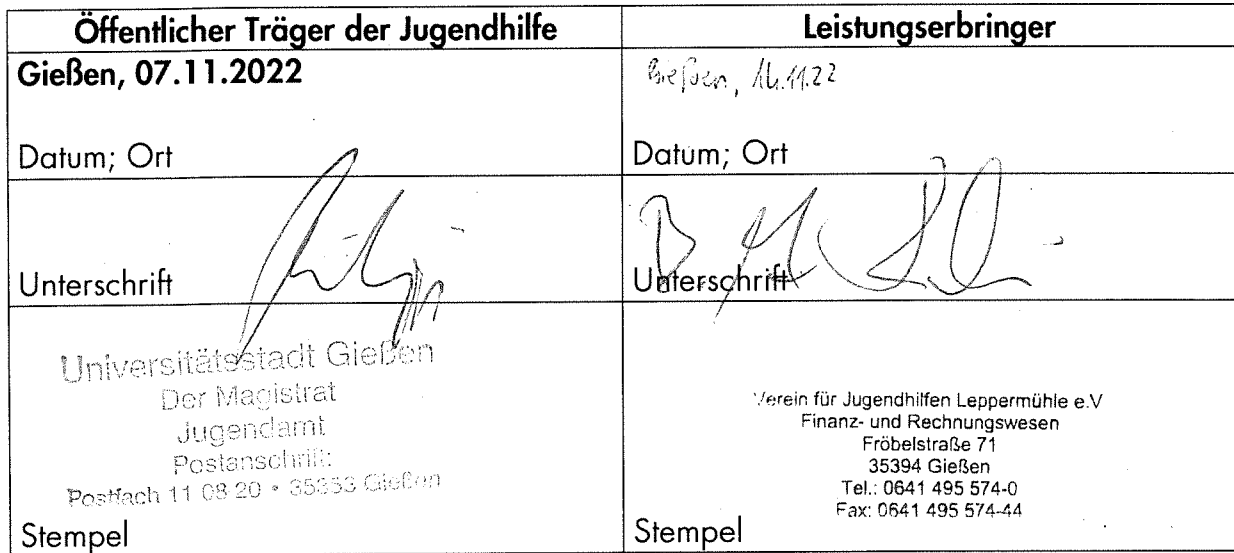 Öffentlicher Träger der Jugendhilfe
Leistungserbringer
Gießen, 07.11.2022
Gießen, 16.11.22
Datum; Ort
Datum; Ort
Unterschrift
Unterschrift
Universitätsstadt Gießen
Der Magistrat
Jugendamt
Postanschrift:
Postfach 11 08 20 • 35353 Gießen
Stempel
Verein für Jugendhilfen Leppermühle e.V
Finanz- und Rechnungswesen
Fröbelstraße 71
35394 Gießen
Tel.: 0641 495 574-0
Fax: 0641 495 574-44
Stempel